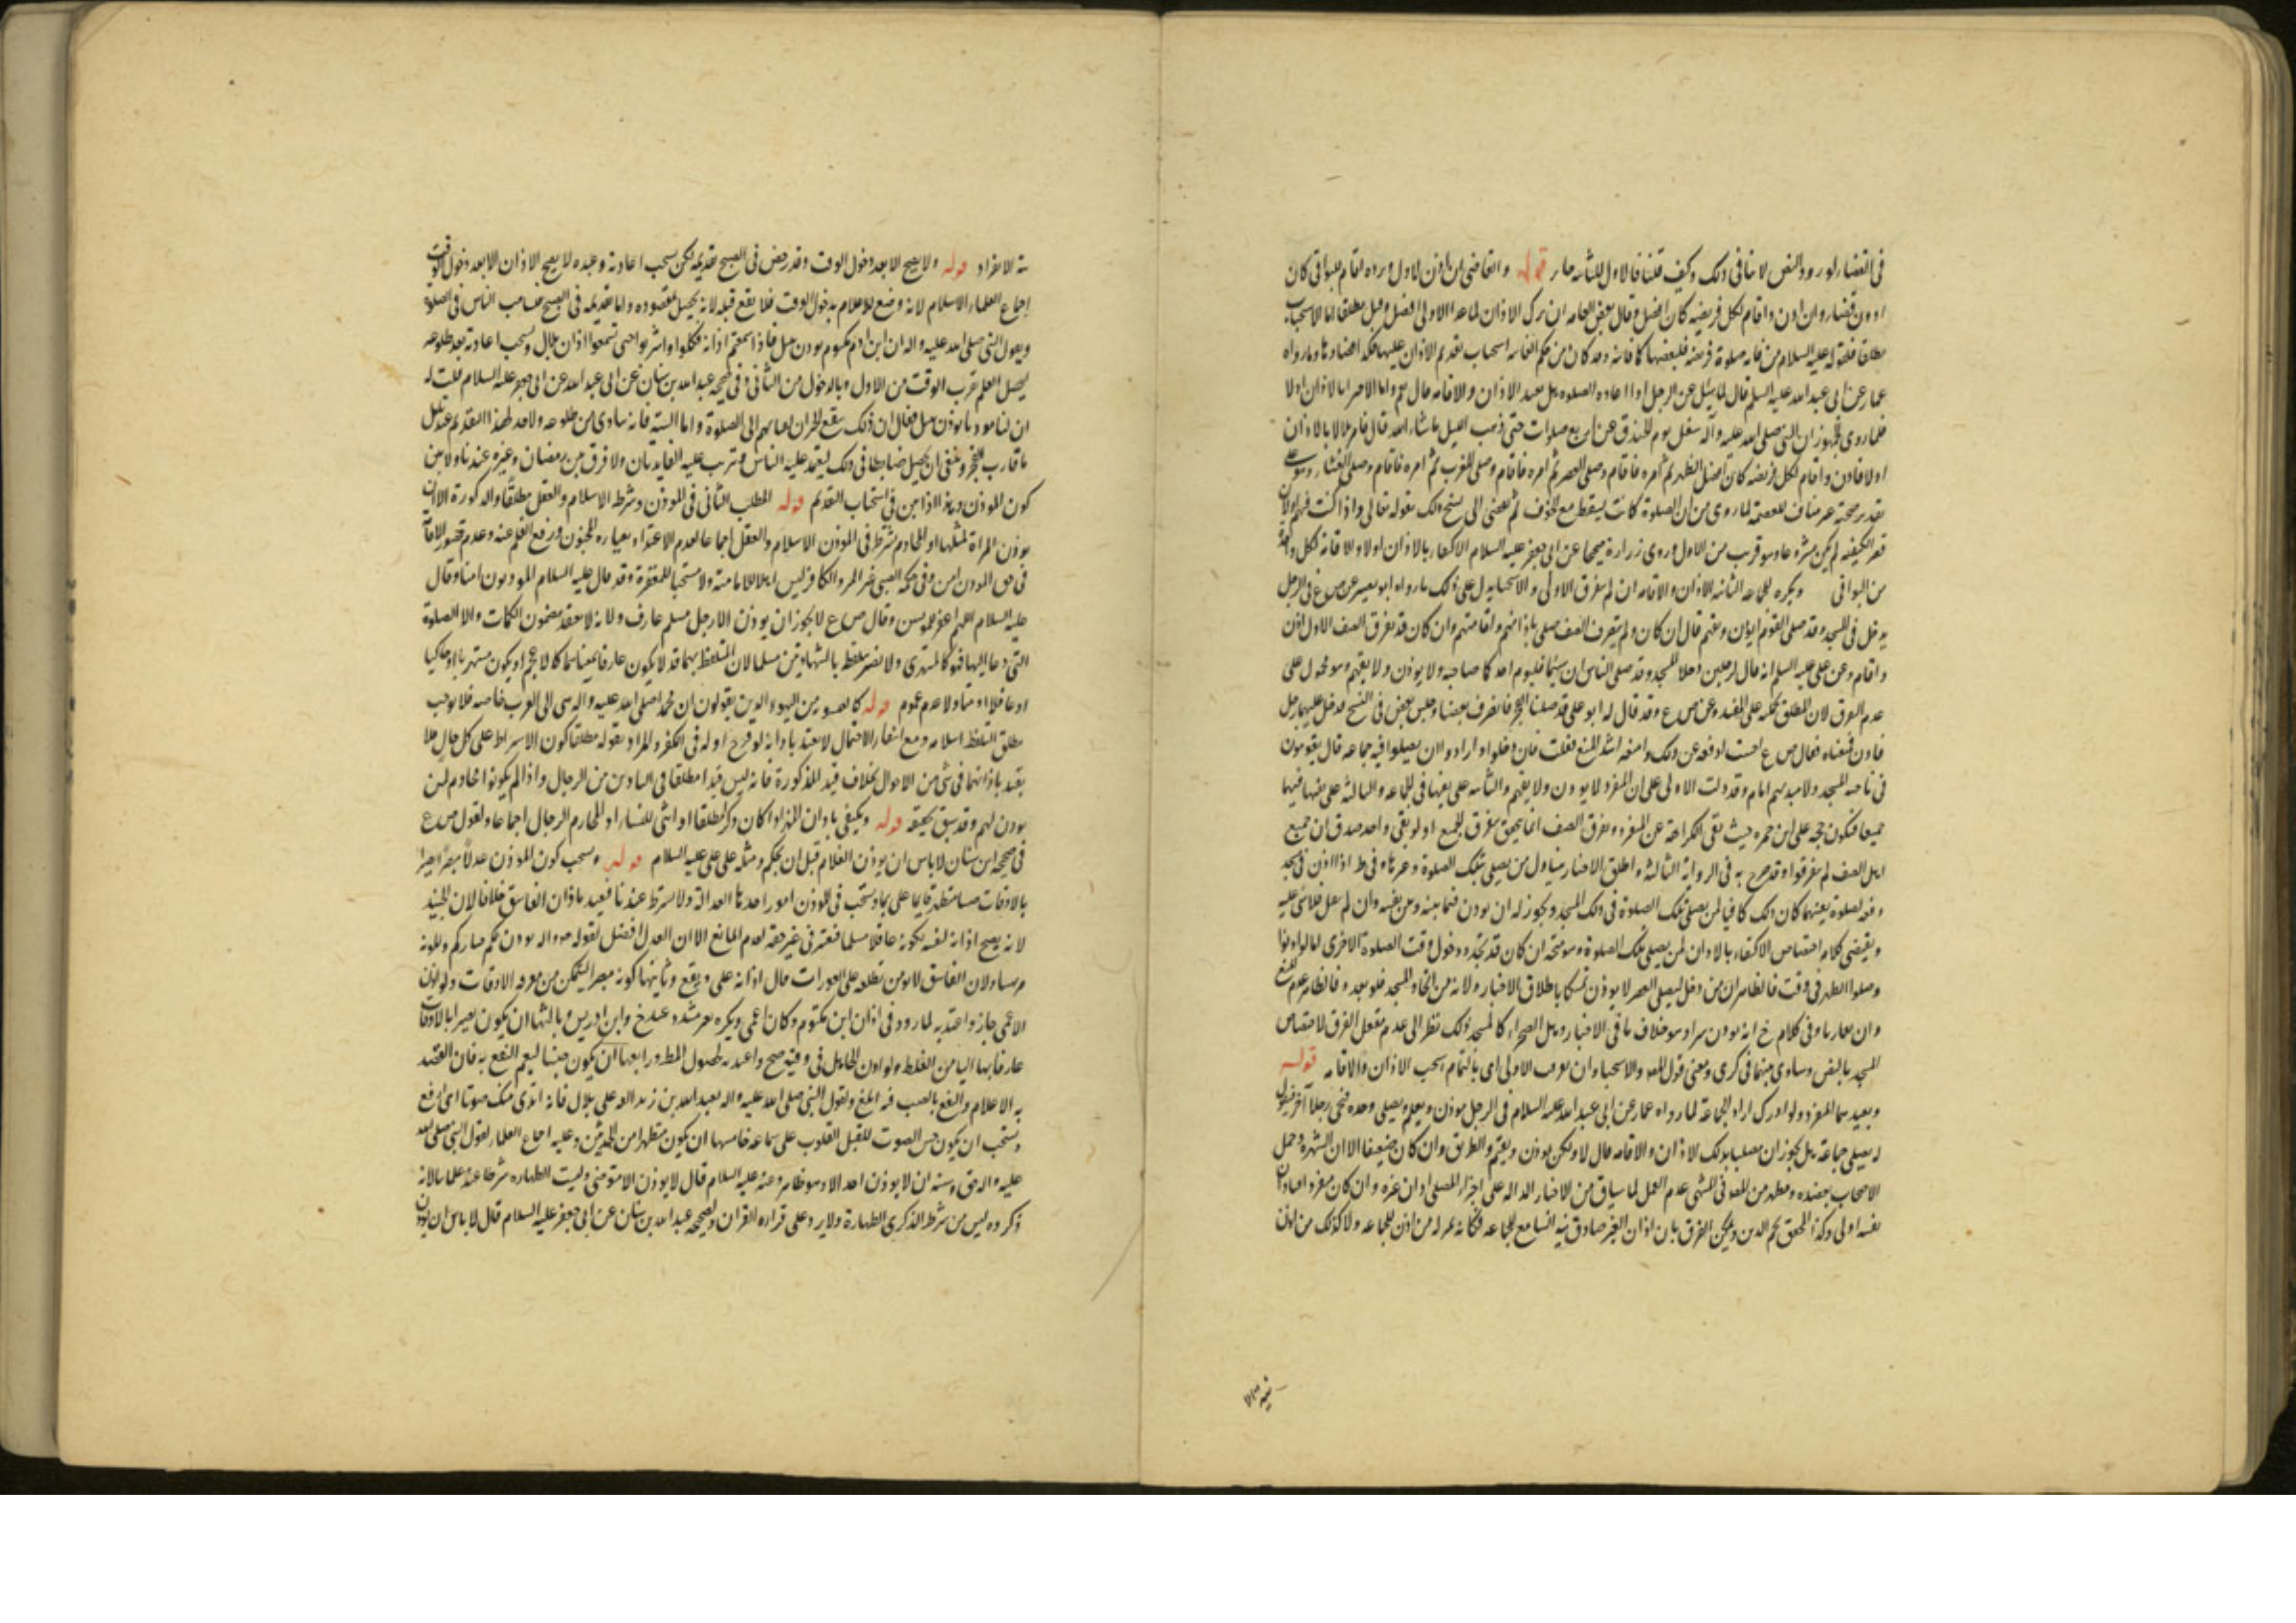 في القضاء لورود النص لا ينافي ذلك وكيف قلنا فالاول للثانية جابر قوله والقاضي ان اذن لاول ورده اقام للبواقي كان
ادون فضلا وان اذن واقام لكل فريضة كان افضل وقال بعض العامة ان ترك الاذان لما عدا الاولى افضل وقيل مطلقا اما الاستحباب
مطلقا فلقوله عليه السلام من فاتته صلوة فريضة فليقضها كما فاتته وقد كان من حكم الفائتة استحباب تقديم الاذان عليها فكذا قضاؤها وما رواه
عمار عن ابي عبد الله عليه السلم قال لما سئل عن الرجل اذا اعاد الصلوة هل يعيد الاذان والاقامة قال نعم واما الاجتزا بالاذان اولا
فلما روى الجمهور ان النبي صلى الله عليه وآله شغل يوم الخندق عن اربع صلوات حتى ذهب الليل ما شاء الله قال فامر بلالا بالاذان
اولا فاذن واقام لكل فريضة كان افضل الظهر ثم امره فاقام وصلى العصر ثم امره فاقام وصلى المغرب ثم امره فاقام وصلى العشاء وهو على
تقدير صحته غير مناف للعصمة لما روي من ان الصلوة كانت يسقط مع الخوف ثم تقضى الى نسخ ذلك بقوله تعالى واذا كنت فيهم ولان
قصر الكيفية لم يكن مشروعا وهو قريب من الاول وروى زرارة صحيحا عن ابي جعفر عليه السلام الاكتفاء بالاذان اولا والاقامة لكل واحدة
من البواقي ويكره للجماعة الثانية الاذان والاقامة ان لم تتفرق الاولى والاستحبابه يدل على ذلك ما رواه ابو بصير عن ص ع في الرجل
يدخل في المسجد وقد صلى القوم ايؤذن ويقيم قال ان كان ولم يتفرق الصف صلى باذانهم واقامتهم وان كان قد تفرق الصف الاول اذن
واقام وعن علي عليه السلم انه قال لرجلين دخلا المسجد وقد صلى الناس ان شئتما فليؤم احدكما صاحبه ولا يؤذن ولا يقيم وهو محمول على
عدم التفرق لان المطلق يحمل على المقيد وعن ص ع وقد قال له ابو علي قد صلينا الفجر فانصرف بعضنا وجلس بعض في التسبيح فدخل علينا رجل
فاذن فمنعناه فقال ص ع احسنت ادفعه عن ذلك وامنعه اشد المنع فقلت فان دخلوا وارادوا ان يصلوا فيه جماعة قال يقومون
في ناحية المسجد ولا يبدر بهم امام وقد دلت الاولى على ان المنفرد لا يؤذن ولا يقيم والثانية على نفيها في الجماعة والثالثة على نفيها فيهما
جميعا فيكون حجة على ابن حمزة حيث نفى الكراهة عن المنفرد وتفرق الصف انما يتحقق بتفرق الجميع اذ لو بقي واحد صدق ان جميع
اهل الصف لم يتفرقوا وقد صرح به في الرواية الثالثة واطلاق الاخبار يتناول من يصلي تلك الصلوة وغيرها وفي ط اذا اذن في مسجد
دفعة لصلوة بعينها كان ذلك كافيا لمن يصلي تلك الصلوة في ذلك المسجد ويجوز له ان يؤذن فيما بينه وبين نفسه وان لم يفعل فلا شيء عليه
ويقتضي كلامه اختصاص الاكتفاء بالاذان لمن يصلي تلك الصلوة وهو متجه ان كان قد تجدد دخول وقت الصلوة الاخرى اما لو اذنوا
وصلوا الظهر في وقت فالظاهر ان من دخل ليصلي العصر لا يؤذن تمسكا باطلاق الاخبار ولا بد من اتحاد المسجد فلو تعدد فالظاهر عدم المنع
وان تقاربا وفي كلام خ انه يؤذن سرا وهو خلاف ما في الاخبار وهل الصحراء كالمسجد في ذلك نظر الى عدم تعقل الفرق لاختصاص
المسجد بالنص وساوى بينهما في كرى ومعنى قول المص والا استحبا وان تفرقت الاولى اي بالتمام استحب الاذان والاقامة قوله
ويعيدهما المنفرد ولو ادرك اراد الجماعة لما رواه عمار عن ابي عبد الله عليه السلام في الرجل يؤذن ويقيم ويصلي وحده فيجيء رجل آخر فيقول
له يصلي جماعة هل يجوز ان يصليا بذلك الاذان والاقامة قال لا ولكن يؤذن ويقيم والطريق وان كان ضعيفا الا ان الشهرة وعمل
الاصحاب يعضده ومطهر من المص في المنتهى عدم العمل لما سياق من الاخبار الدالة على اجزاء المصلي اذان غيره وان كان منفردا فباذان
نفسه اولى وكذا المحقق نجم الدين ويمكن الفرق بان اذان الغير صادق نية السامع للجماعة فكانه بمنزلة من اذن للجماعة ولا كذلك من اذن
بنية الانفراد قوله ولا يصح الا بعد دخول الوقت وقد رخص في الصبح تقديمه لكن يستحب اعادته وعنده لا يصح الاذان الا بعد دخول الوقت
اجماع العلماء الاسلام لانه وضع للاعلام بدخول الوقت فلا يقع قبله لانه يختل مقصوده واما تقديمه في الصبح فلتأهب الناس في الصلوة
ويقول النبي صلى الله عليه واله ان ابن ام مكتوم يؤذن بليل فاذا سمعتم اذانه فكلوا واشربوا حتى تسمعوا اذان بلال ويستحب اعادته بعد طلوعه
ليحصل العلم بقرب الوقت من الاول وبالدخول من الثاني وفي صحيحة عبد الله بن سنان عن ابي عبد الله عن ابي جعفر عليه السلام قلت له
ان لنا مؤذنا يؤذن بليل فقال ان ذلك ينفع الجيران لقيامهم الى الصلوة واما السنة فانه ينادى من طلوعه ولا حد لهذا التقديم عندنا بل
ما قارب الفجر وينبغي ان يجعل ضابطا في ذلك ليعتمد عليه الناس وترتب عليه الفائدتان ولا فرق بين رمضان وغيره عندنا ولا بين
كون المؤذن واحدا او اثنين في استحباب التقديم قوله المطلب الثاني في المؤذن وشرطه الاسلام والعقل مطلقا والذكورة الا ان
يؤذن المراة لمثلها او للمحارم شرط في المؤذن الاسلام والعقل اجماعا لعدم الاعتداد بعبارة المجنون ورفع القلم عنه وعدم تصور الامانة
في حق المؤذن امين وفي حكمه الصبي غير المميز والكافر ليس اهلا للامانة ولا مستحبا للمغفرة وقد قال عليه السلام المؤذنون امناء وقال
عليه السلام اللهم اغفر للمؤذنين وقال ص ع لا يجوز ان يؤذن الا رجل مسلم عارف ولانه لا يعتقد مضمون الكلمات والا الصلوة
التي دعا اليها فهو كالمستهزئ ولا يصير بتلفظه بالشهادتين مسلما لان المتلفظ بهما قد لا يكون عارفا بمعناهما كالاعجم او يكون مستهزيا او حاكيا
او غافلا او متاولا عدم عموم قوله كالعيسوية من اليهود الذين يقولون ان محمدا صلى الله عليه واله نبي الى العرب خاصة فلا يوجب
مطلق التلفظ اسلامه ومع انتفاء الاحتمال لا يعتد باذانه لوقوع اوله في الكفر والمراد بقوله مطلقا كون الاشتراط على كل حال فلا
يعتد باذانهما في شيء من الاحوال بخلاف قيد الذكورة فانه ليس قيدا مطلقا في التاذين من الرجال واذا لم يكونوا محارم لمن
يؤذن لهم وقد سبق تحقيقه قوله ويكتفي باذان المميز اذا كان ذكرا مطلقا او انثى للنساء او المحارم الرجال اجماعا ولقول ص ع
في صحيحة ابن سنان لا باس ان يؤذن الغلام قبل ان يحتلم ومثله على علي عليه السلام قوله ويستحب كون المؤذن عدلا مبصرا بصيرا
بالاوقات صيتا متطهرا قايما على مرتفع ويستحب في المؤذن امور احدها العدالة ولا يشترط عندنا فيعتد باذان الفاسق خلافا لابن الجنيد
لانه يصح اذانه لنفسه لكونه عاقلا مسلما فيعتبر في غير حقه لعدم المانع الا ان العدل افضل لقوله ص واله يؤذن لكم خياركم ولكونه
مؤتمنا ولان الفاسق لا يؤمن تطلعه على العورات حال اذانه على مرتفع وثانيها كونه مبصرا ليتمكن من معرفة الاوقات ولو اذن
الاعمى جاز واعتد به لما ورد في اذان ابن مكتوم وكان اعمى ويكره بغير مسدد عند خ وابن ادريس وثالثها ان يكون بصيرا بالاوقات
عارفا بها ليأمن الغلط ولو اذن الجاهل في وقته صح واعتد به لحصول المطلوب ورابعها ان يكون صيتا ليعم النفع به فان القصد
به الاعلام والنفع بالصيت فيه ابلغ ولقول النبي صلى الله عليه واله لعبد الله بن زيد القه على بلال فانه اندى منك صوتا اي ارفع
ويستحب ان يكون حسن الصوت لتقبل القلوب على سماعه خامسها ان يكون متطهرا من الحدثين وعليه اجماع العلماء لقول النبي صلى الله
عليه واله حق وسنة ان لا يؤذن احد الا وهو طاهر وعنه عليه السلام قال لا يؤذن الا متوضئ وليست الطهارة شرطا عند علمائنا لانه
ذكر وليس من شرط الذكر الطهارة ولا يزيد على قراءة القران ولصحيحة عبد الله بن سنان عن ابي جعفر عليه السلام قال لا باس ان يؤذن